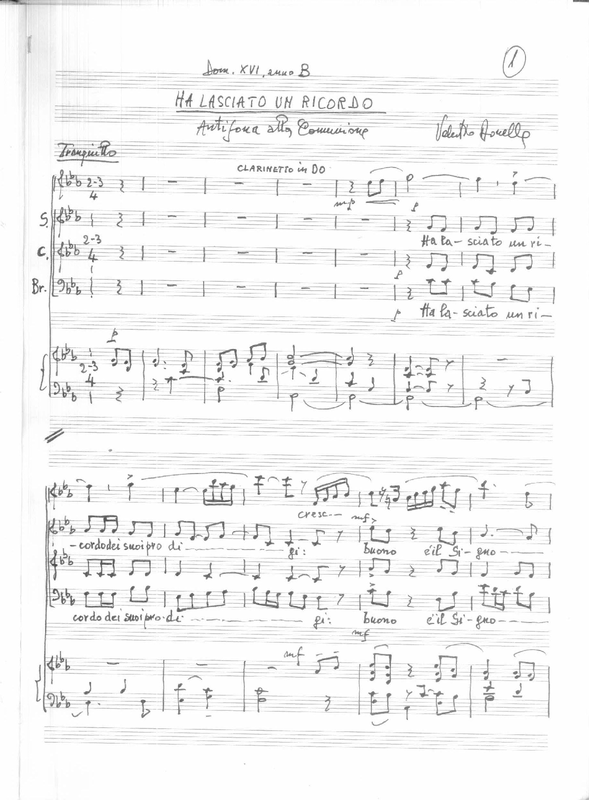 Dom. XVI, anno B
1
HA LASCIATO UN RICORDO
Antifona alla Comunione
Valentino Donella
Tranquillo
CLARINETTO in DO
2-3
4
mp
p
S.
Ha la- sciato un ri-
C.
2-3
4
p
Br.
p
Ha la- sciato un ri-
p
2-3
4
cresc.-- mf
-cordo dei suoi pro-di- gi: buono è il Si-gno-
cordo dei suoi pro-di- gi: buono è il Si-gno-
mf
mf